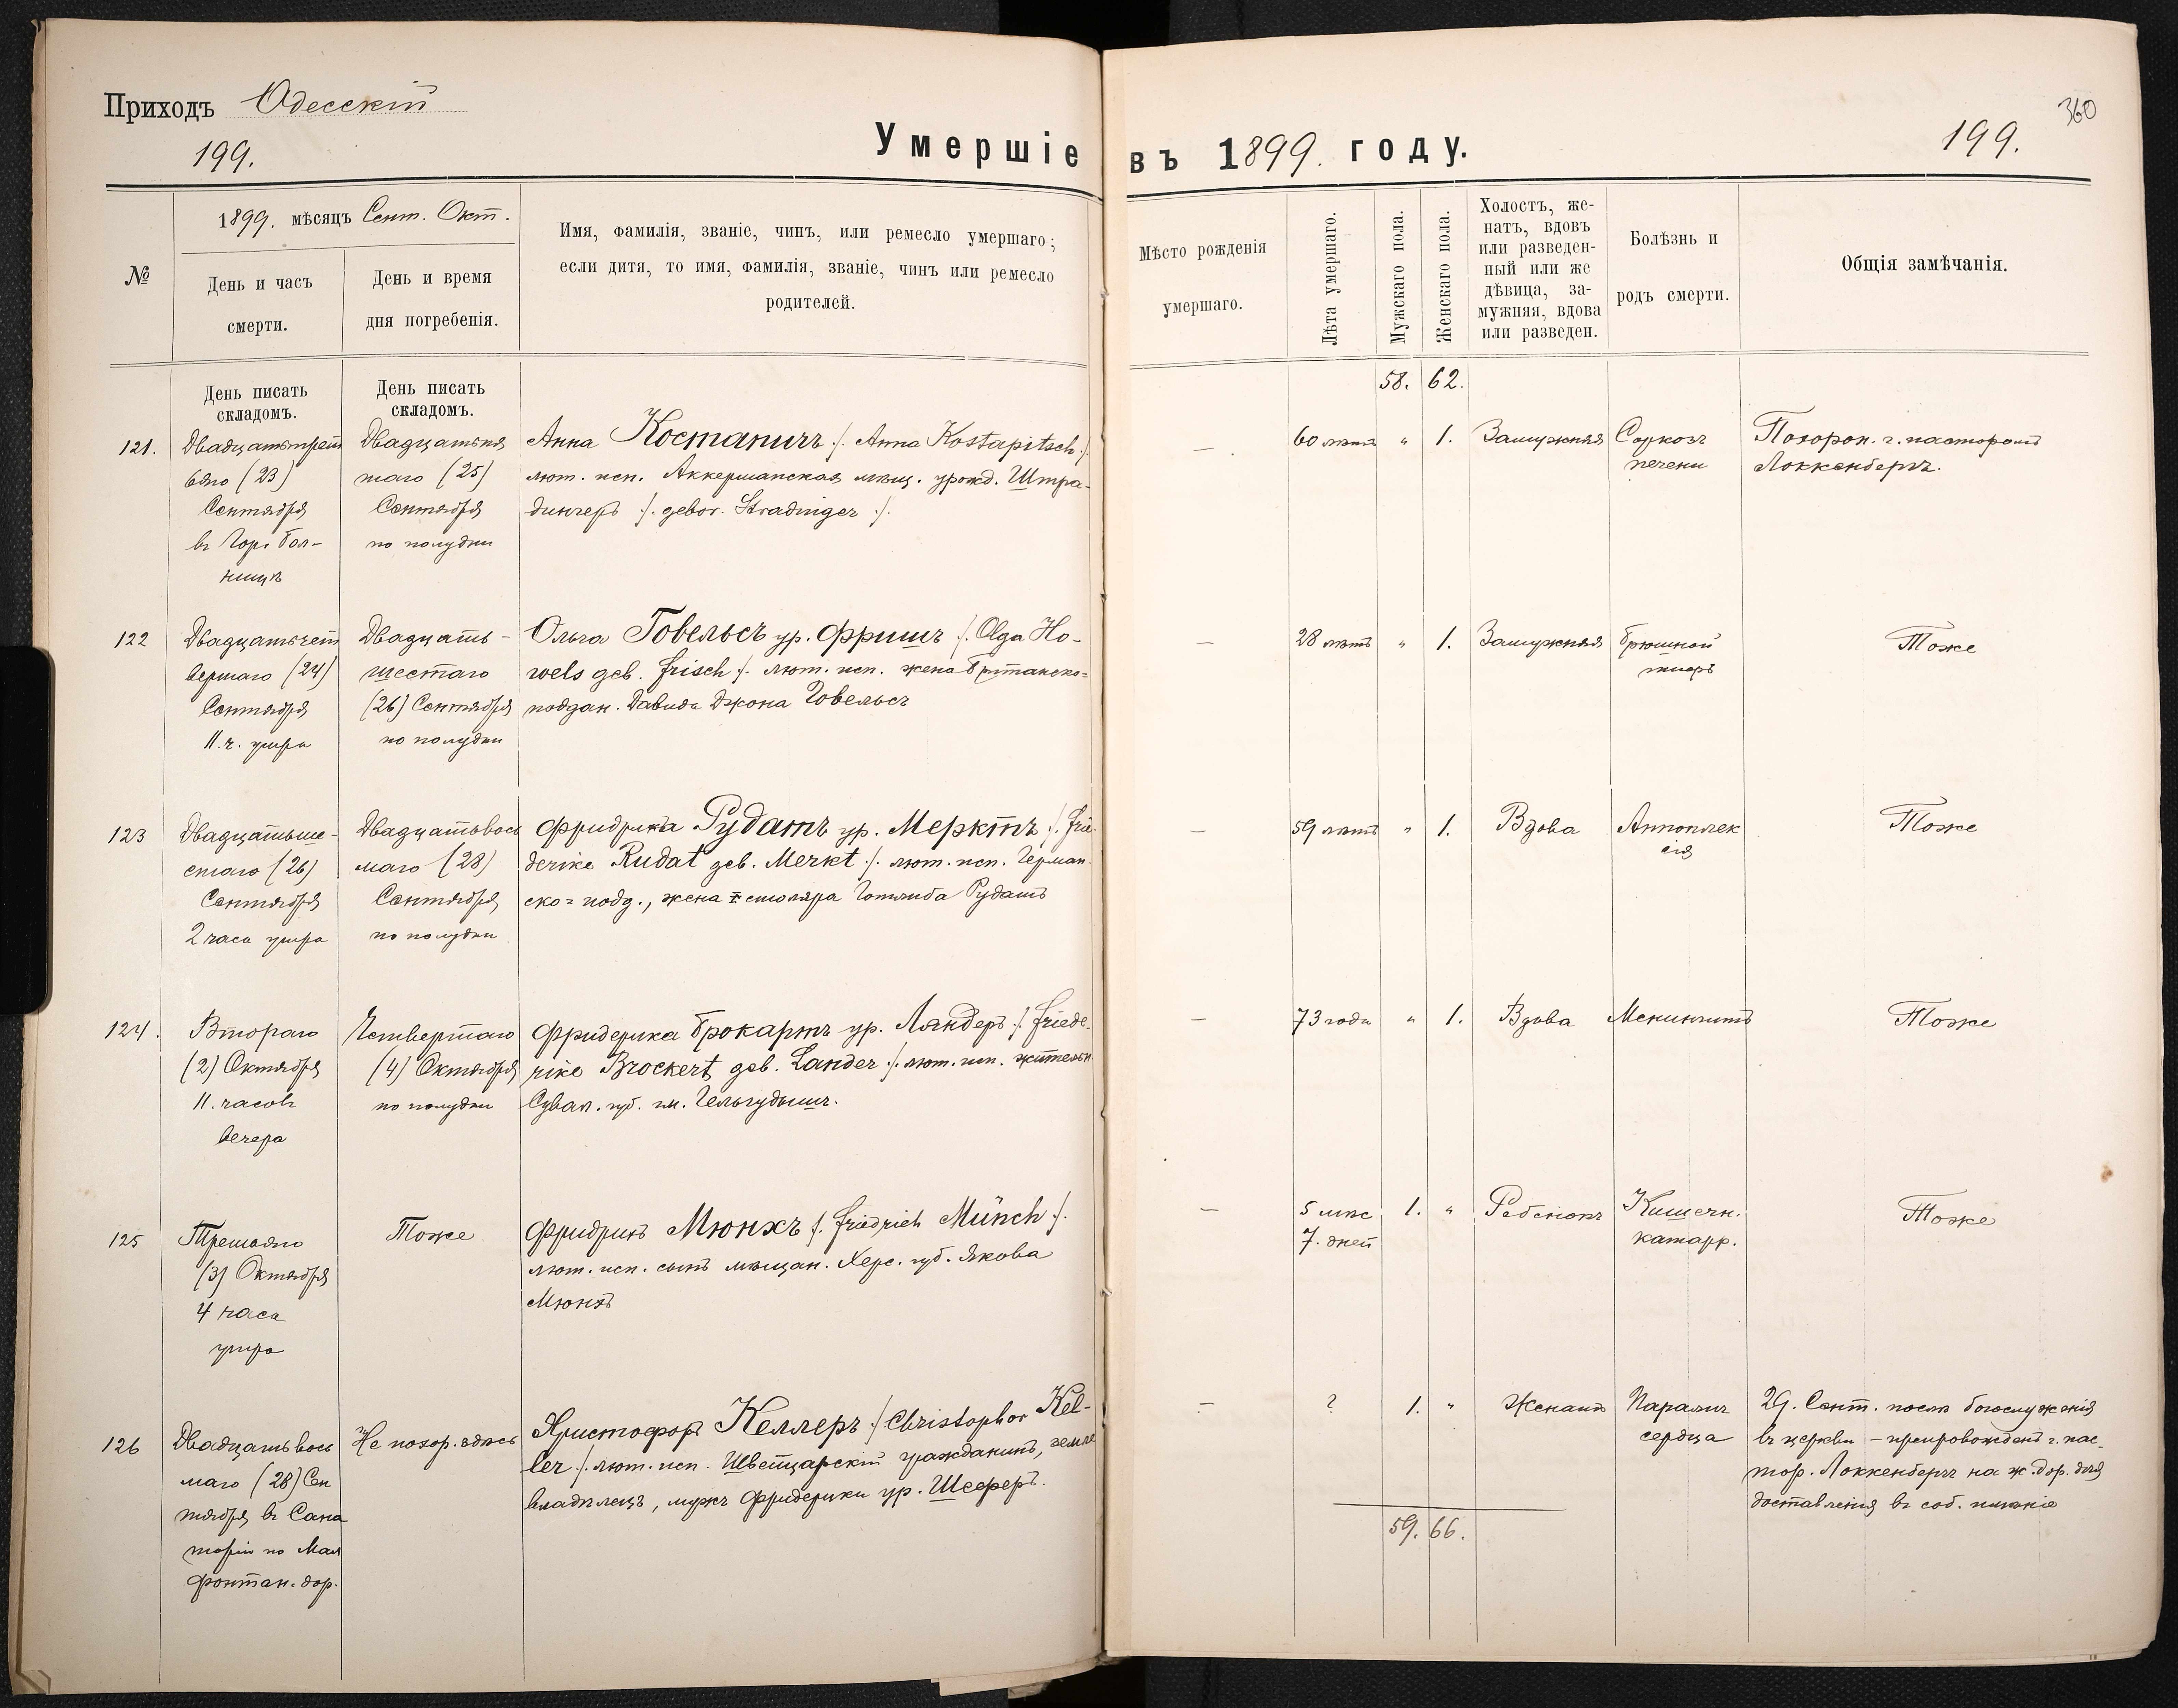 Приходъ Одесскій
199.
Умершіе въ 1899. году.
199.
360
№
1899. мѣсяцъ Сент. Окт.
День и часъ
смерти.
День и время
дня погребенія.
Имя, фамилія, званіе, чинъ, или ремесло умершаго;
если дитя, то имя, фамилія, званіе, чинъ или ремесло
родителей.
Мѣсто рожденія
умершаго.
Лѣта умершаго.
Мужскаго пола.
Женскаго пола.
Холостъ, же-
натъ, вдовъ
или разведен-
ный или же
дѣвица, за-
мужняя, вдова
или разведен.
Болѣзнь и
родъ смерти.
Общія замѣчанія.
День писать
складомъ.
День писать
складомъ.
58. 62.
121.
Двадцатьтрет
ьяго (23)
Сентября
въ Гор. бол-
ницѣ
Двадцатьпя
таго (25)
Сентября
по полудни
Анна Костапичъ /. Anna Kostapitsch ./
лют. исп. Аккерманская мѣщ. урожд. Штра-
дингеръ /. gebor. Stradinger ./
—
60 лѣтъ
" 1.
Замужняя
Саркозъ
печени
Похорон. г. пасторомъ
Локкенбергъ.
122
Двадцатьчет
вертаго (24)
Сентября
11. ч. утра
Двадцать-
шестаго
(26) Сентября
по полудни
Ольга Говельсъ ур. Фришъ /. Olga Ho-
wels geb. Frisch ./ лют. исп. жена Британско-
поддан. Давида Джона Говельсъ
—
28 лѣтъ
" 1.
Замужняя
Брюшной
тифъ
Тоже
123
Двадцатьше-
стаго (26)
Сентября
2 часа утра
Двадцатьвось
маго (28)
Сентября
по полудни
Фридрика Рудатъ ур. Мерктъ /. Frie-
derike Rudat geb. Merkt ./ лют. исп. Герман-
ско=подд., жена столяра Готлиба Рудатъ
—
59 лѣтъ
" 1.
Вдова
Аппоплек
сія
Тоже
124.
Втораго
(2) Октября
11. часовъ
вечера
Четвертаго
(4) Октября
по полудни
Фридерика Брокартъ ур. Ляндеръ /. Friede-
rike Brockert geb. Lander ./ лют. исп. жительн
Сувал. губ. гм. Гельгудышъ.
—
73 года
" 1.
Вдова
Менингитъ
Тоже
125
Третьяго
(3) Октября
4 часа
утра
Тоже
Фридрихъ Мюнхъ /. Friedrich Münch ./
лют. исп. сынъ мѣщан. Херс. губ. Якова
Мюнхъ
—
5 мѣс
7. дней
1. "
Ребенокъ
Кишечн.
катарр.
Тоже
126
Двадцатьвось
маго (28) Сен
тября въ Сана
торіи по Мал
фонтан. дор.
Не похор. здѣсь
Христофоръ Келлеръ /. Christophor Kel-
ler ./ лют. исп. Швейцарскій гражданинъ, земле
владѣлецъ, мужъ Фридерики ур. Шеферъ.
—
?
1. "
Женатъ
Параличъ
сердца
29. Сент. послѣ богослуженія
въ церкви – препровожденъ г. пас-
тор. Локкенбергъ на ж. дор. для
доставленія въ соб. имѣніе
59. 66.